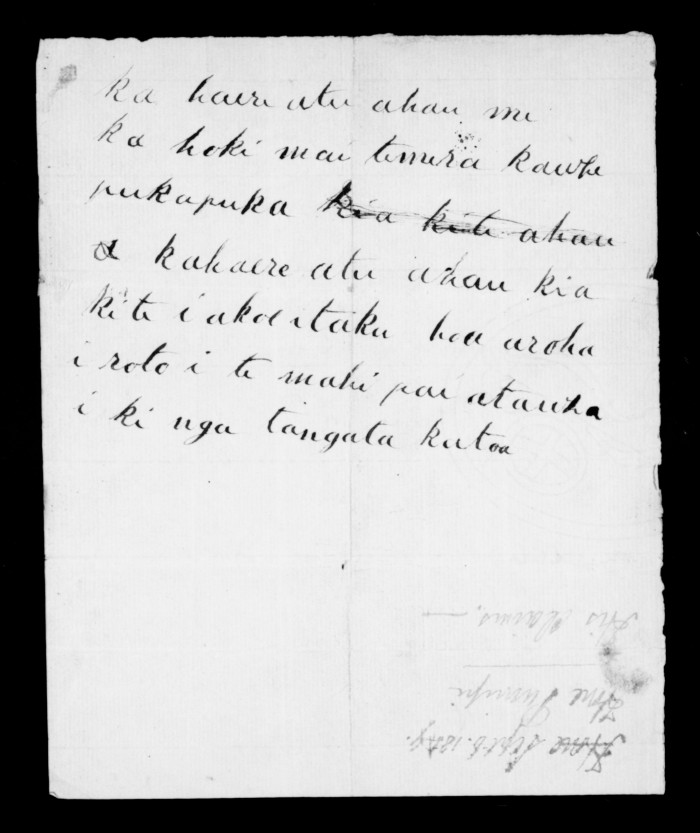 ka haere atu ahau me
ka hoki mai temera kawhe
pukapuka kia kite ahau
kahaere atu ahau kia
kite i akoe itaku hoa aroha
i roto i te mahi pai atauha
i ki nga tangata kutoa
his claims. —
Hne Sept 8. 185